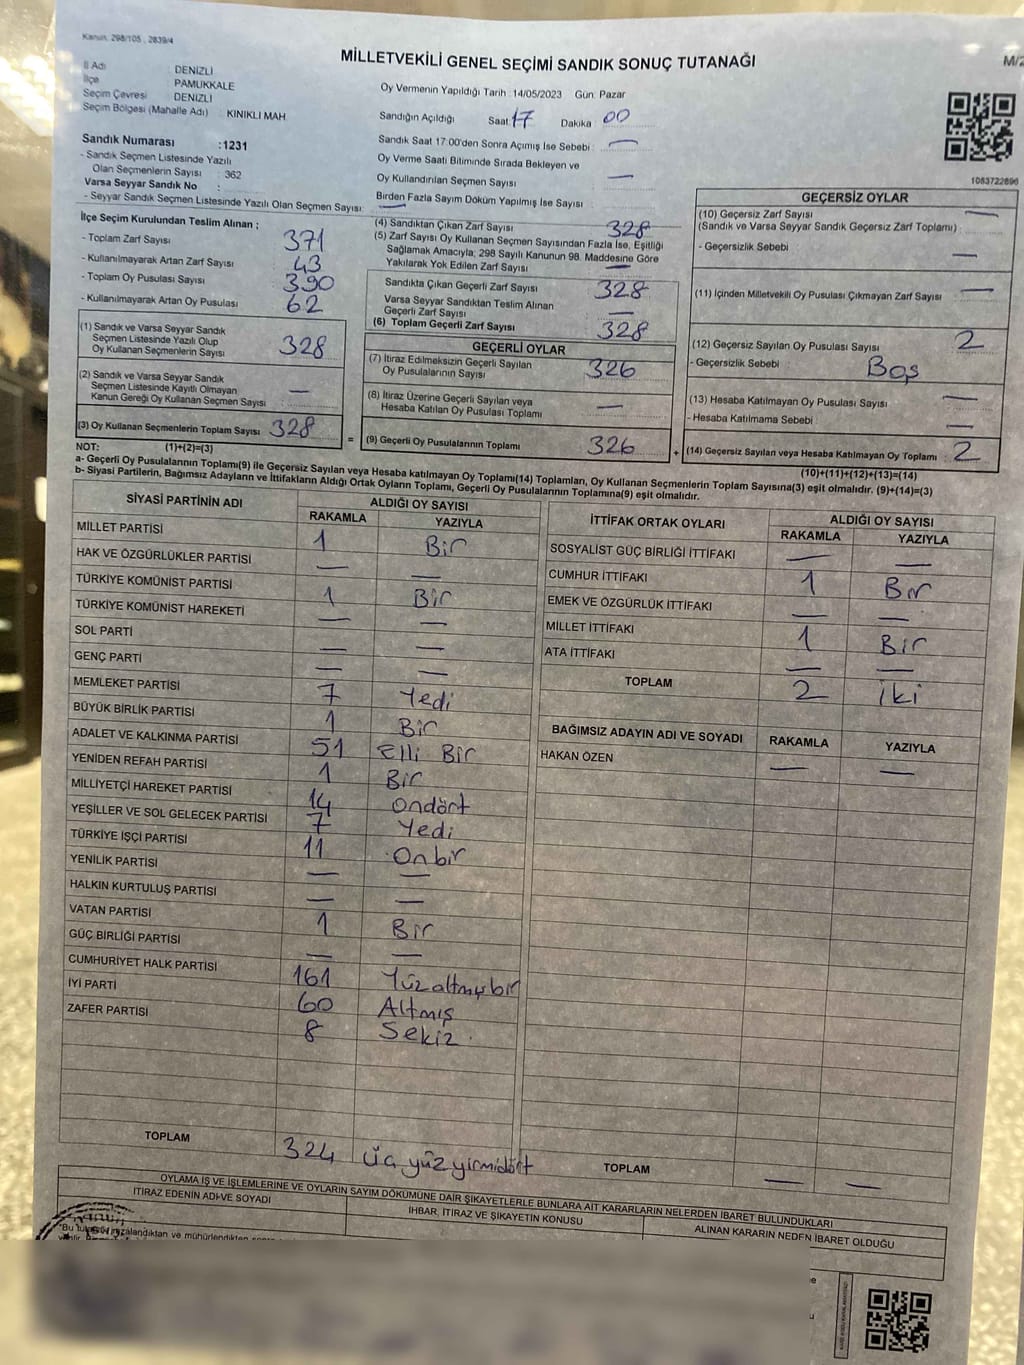 Kanun. 298/105 , 2839/4
MİLLETVEKİLİ GENEL SEÇİMİ SANDIK SONUÇ TUTANAĞI
M/2
İl Adı : DENİZLİ
İlçe : PAMUKKALE
Seçim Çevresi : DENİZLİ
Seçim Bölgesi (Mahalle Adı) : KINIKLI MAH
Oy Vermenin Yapıldığı Tarih : 14/05/2023 Gün: Pazar
Sandığın Açıldığı Saat 17 Dakika 00
Sandık Saat 17:00'den Sonra Açımış İse Sebebi : —
Oy Verme Saati Bitiminde Sırada Bekleyen ve
Oy Kullandırılan Seçmen Sayısı : —
Birden Fazla Sayım Döküm Yapılmış İse Sayısı :
Sandık Numarası : 1231
- Sandık Seçmen Listesinde Yazılı
Olan Seçmenlerin Sayısı : 362
Varsa Seyyar Sandık No :
- Seyyar Sandık Seçmen Listesinde Yazılı Olan Seçmen Sayısı: —
1083722696
İlçe Seçim Kurulundan Teslim Alınan ;
- Toplam Zarf Sayısı : 371
- Kullanılmayarak Artan Zarf Sayısı : 43
- Toplam Oy Pusulası Sayısı : 390
- Kullanılmayarak Artan Oy Pusulası : 62
(1) Sandık ve Varsa Seyyar Sandık
Seçmen Listesinde Yazılı Olup
Oy Kullanan Seçmenlerin Sayısı : 328
(2) Sandık ve Varsa Seyyar Sandık
Seçmen Listesinde Kayıtlı Olmayan
Kanun Gereği Oy Kullanan Seçmen Sayısı : —
(3) Oy Kullanan Seçmenlerin Toplam Sayısı : 328
(4) Sandıktan Çıkan Zarf Sayısı : 328
(5) Zarf Sayısı Oy Kullanan Seçmen Sayısından Fazla İse, Eşitliği
Sağlamak Amacıyla; 298 Sayılı Kanunun 98. Maddesine Göre
Yakılarak Yok Edilen Zarf Sayısı : —
Sandıkta Çıkan Geçerli Zarf Sayısı : 328
Varsa Seyyar Sandıktan Teslim Alınan
Geçerli Zarf Sayısı : —
(6) Toplam Geçerli Zarf Sayısı : 328
GEÇERLİ OYLAR
(7) İtiraz Edilmeksizin Geçerli Sayılan
Oy Pusulalarının Sayısı : 326
(8) İtiraz Üzerine Geçerli Sayılan veya
Hesaba Katılan Oy Pusulası Toplamı : —
= (9) Geçerli Oy Pusulalarının Toplamı 326
GEÇERSİZ OYLAR
(10) Geçersiz Zarf Sayısı —
(Sandık ve Varsa Seyyar Sandık Geçersiz Zarf Toplamı) :
- Geçersizlik Sebebi : —
(11) İçinden Milletvekili Oy Pusulası Çıkmayan Zarf Sayısı : —
(12) Geçersiz Sayılan Oy Pusulası Sayısı : 2
- Geçersizlik Sebebi : Boş
(13) Hesaba Katılmayan Oy Pusulası Sayısı : —
- Hesaba Katılmama Sebebi : —
+ (14) Geçersiz Sayılan veya Hesaba Katılmayan Oy Toplamı : 2
NOT: (1)+(2)=(3)
(10)+(11)+(12)+(13)=(14)
a- Geçerli Oy Pusulalarının Toplamı(9) ile Geçersiz Sayılan veya Hesaba katılmayan Oy Toplamı(14) Toplamları, Oy Kullanan Seçmenlerin Toplam Sayısına(3) eşit olmalıdır. (9)+(14)=(3)
b- Siyasi Partilerin, Bağımsız Adayların ve İttifakların Aldığı Ortak Oyların Toplamı, Geçerli Oy Pusulalarının Toplamına(9) eşit olmalıdır.
SİYASİ PARTİNİN ADI ALDIĞI OY SAYISI
RAKAMLA YAZIYLA
MİLLET PARTİSİ 1 Bir
HAK VE ÖZGÜRLÜKLER PARTİSİ — —
TÜRKİYE KOMÜNİST PARTİSİ 1 Bir
TÜRKİYE KOMÜNİST HAREKETİ — —
SOL PARTİ — —
GENÇ PARTİ — —
MEMLEKET PARTİSİ 7 Yedi
BÜYÜK BİRLİK PARTİSİ 1 Bir
ADALET VE KALKINMA PARTİSİ 51 Elli Bir
YENİDEN REFAH PARTİSİ 1 Bir
MİLLİYETÇİ HAREKET PARTİSİ 14 Ondört
YEŞİLLER VE SOL GELECEK PARTİSİ 7 Yedi
TÜRKİYE İŞÇİ PARTİSİ 11 Onbir
YENİLİK PARTİSİ — —
HALKIN KURTULUŞ PARTİSİ — —
VATAN PARTİSİ 1 Bir
GÜÇ BİRLİĞİ PARTİSİ — —
CUMHURİYET HALK PARTİSİ 161 Yüzaltmışbir
İYİ PARTİ 60 Altmış
ZAFER PARTİSİ 8 Sekiz
TOPLAM 324 üç yüz yirmidört
İTTİFAK ORTAK OYLARI ALDIĞI OY SAYISI
RAKAMLA YAZIYLA
SOSYALİST GÜÇ BİRLİĞİ İTTİFAKI — —
CUMHUR İTTİFAKI 1 Bir
EMEK VE ÖZGÜRLÜK İTTİFAKI — —
MİLLET İTTİFAKI 1 Bir
ATA İTTİFAKI — —
TOPLAM 2 iki
BAĞIMSIZ ADAYIN ADI VE SOYADI RAKAMLA YAZIYLA
HAKAN ÖZEN — —
TOPLAM — —
OYLAMA İŞ VE İŞLEMLERİNE VE OYLARIN SAYIM DÖKÜMÜNE DAİR ŞİKAYETLERLE BUNLARA AİT KARARLARIN NELERDEN İBARET BULUNDUKLARI
İTİRAZ EDENİN ADI VE SOYADI İHBAR, İTİRAZ VE ŞİKAYETİN KONUSU ALINAN KARARIN NEDEN İBARET OLDUĞU